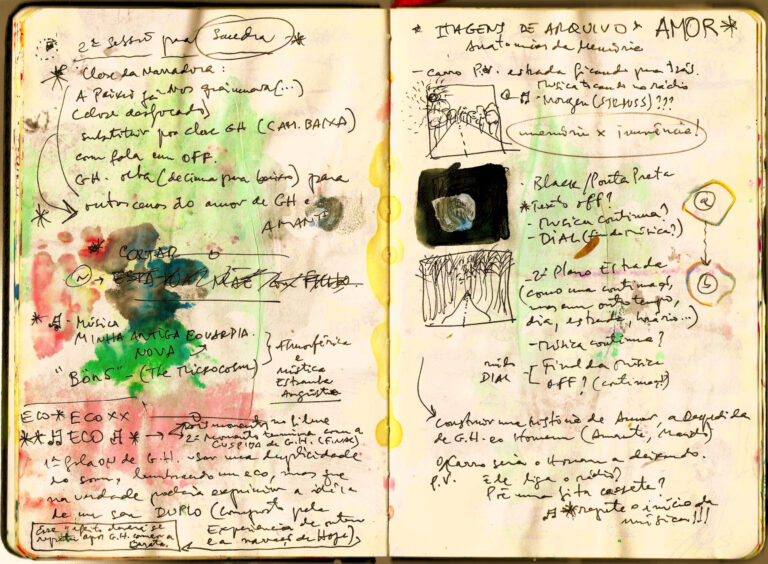 2ª Sessão para Sandra *
* Close da Narradora:
A Paixão
(close desfocado)
substituir por close GH (CAM. BAIXA)
com fala em OFF.
G.H. olha (de cima para baixo) para
outros cenas do amor de GH e
AMANTE
CORTAR
* Música
MINHA ANTIGA EQUARDIA.
NOVA
"BÖNS" - (The Microcosm)
Atmosférica
e
Mística
Estranha
Angústia
ECO* ECO xx
** ECO * → momento no filme
2º momento termina com a
CUSPIDA de G.H. (FINAL)
1ª fala ON de G.H. usar uma duplicidade
no som, lembrando um eco, mas que
na verdade poderia exprimir a ideia
de um ser DUPLO (composto pela
Experiência de ontem
e a narração de Hoje)
Esse efeito deverá se
repetir após G.H. comer a
Barata.
* IMAGENS DE ARQUIVO * AMOR *
Anatomias da Memória
- carro P.V. estrada ficando para trás.
Música tocando no rádio
(STRAUSS)???
memória x
- Black / Ponta Preta
* Texto off?
- Musica continua?
- DIAL (fim de música?)
a
- 2º Plano Estrada
(como uma continuação,
mas em outro tempo,
dia, estrada, horário...)
b
- Música continua?
DIAL
- Final da música
OFF? (continua!!)
Construir uma história de Amor, a despedida
de G.H. e o Homem (Amante, Marido)
O carro seria o Homem a deixando.
P.V. Ele liga o rádio?
Põe uma fita cassete?
* repete o início da
música!!!